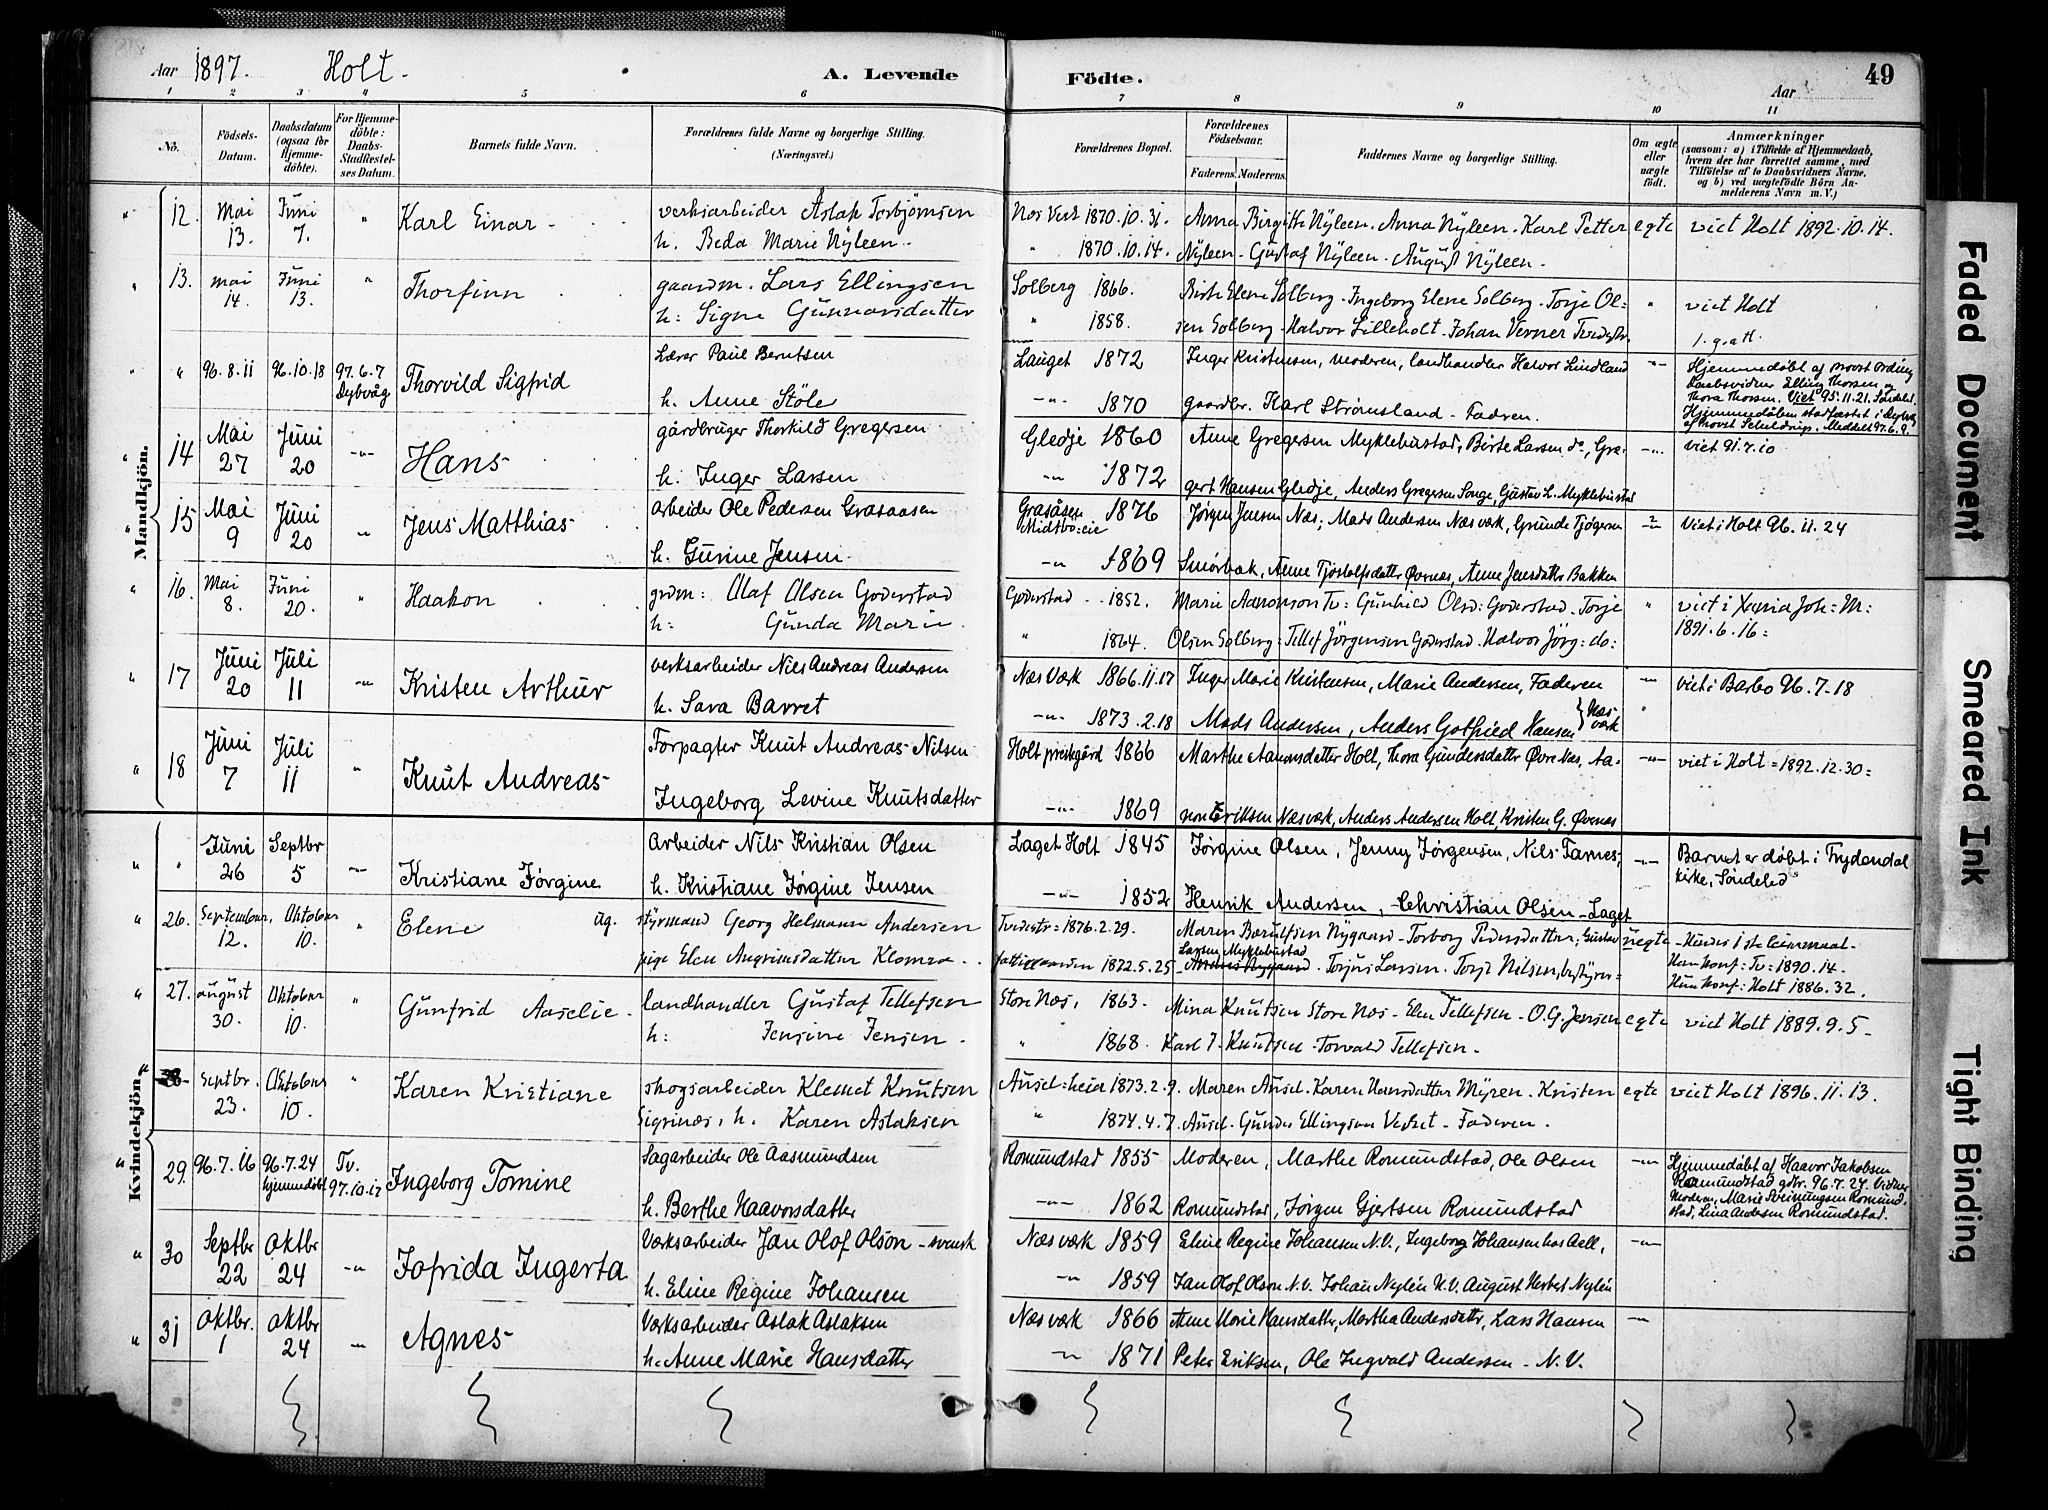 Aar 1897. Holt. A. Levende Födte. Aar 49
1 2 3 4 5 6 7 8 9 10 11
No. Födsels-Datum. Daabsdatum (ogsaa for Hjemme-döbte). For Hjemme-döbte: Daabs-Stadfæstel-ses Datum. Barnets fulde Navn. Forældrenes fulde Navne og borgerlige Stilling. (Næringsvei.) Forældrenes Bopæl. Forældrenes Födselsaar. Faderens. Moderens. Faddernes Navne og borgerlige Stilling. Om ægte eller uægte födt. Anmærkninger (saasom: a) i Tilfælde af Hjemmedaab, hvem der har forrettet samme, med Tilföielse af to Daabsvidners Navne, og b) ved uægtefödte Börn Anmelderens Navn m. V.)
Mandkjön.
12. Mai 13. Juni 7. " Karl Einar - verksarbeider Aslak Torbjörnsen Næs Verk 1870.10.31. Anna Birgitte Nyleen. Anna Nyleen. Karl Petter egte viet Holt 1892.10.14.
h. Beda Marie Nyleen. " 1870.10.14. Nyleen - Gustaf Nyleen. August Nyleen.
13. Mai 14. Juni 13. " Thorfinn gaardm. Lars Ellingsen Solberg 1866. Birte Elene Solberg. Ingeborg Elene Solberg. Torje Ol= " viet Holt
h: Signe Gunnarsdatter " 1858. sen Solberg. Halvor Lilleholt. Johan Verner Tvedestr. 1. g. a H.
" 96.8.11 96.10.18 97.6.7 Dybvåg Thorvild Sigfrid Lærer Paul Berntsen Lauget 1872 Inger Kristensen, moderen, landhandler Halvor Lindland -"- Hjemmedøbt af provst Ording
Daabsvidner Elling Thorsen og
h. Anne Støle -"- 1870 gaardbr. Karl Strømsland - Fadren. Thora Thorsen. Viet 95.11.21. Søndeled.
Hjemmedåben stadfæstet i Dybvåg
14 Mai 27 Juni 20 -"- Hans gårdbruger Thorkild Gregersen Gledje 1860 Anne Gregersen Myklebustad, Birte Larsen do, Gre- -"- viet 91.7.10
h. Inger Larsen -"- 1872 gert Hansen Gledje, Anders Gregersen Songe, Gustav L. Myklebustad
15 Mai 9 Juni 20 " Jens Matthias arbeider Ole Pedersen Grasaasen Grasåsen Midtbo:eie 1876 Jørgen Jensen Næs; Mads Andersen Næsværk, Grunde Tjøgersen -"- Viet i Holt 96.11.24
h. Gurine Jensen -"- 1869 Smørbæk, Anne Tjostolfsdatter Øvrenæs, Anne Jensdatter Bakken
16. Mai 8. Juni 20. " Haakon grdm: Olaf Olsen Goderstad Goderstad 1852. Marie Aanonson Tv: Gunhild Olsd: Goderstad. Torje " viet i Xania Joh: M:
h: Gunda Marie " 1864. Olsen Solberg: Tellef Jörgensen Goderstad. Halvor Jörg: do: 1891.6.16:
17 Juni 20 Juli 11 -"- Kristen Arthur verksarbeider Nils Andreas Andersen Næs Værk 1866.11.17 Inger Marie Kristensen, Marie Andersen, Faderen -"- viet i Barbo 96.7.18
h. Sara Barret -"- 1873.2.18 Mads Andersen, Anders Gotfried Hansen } Næsværk "
18 Juni 7 Juli 11 " Knut Andreas Forpagter Knut Andreas Nilsen Holt prestegård 1866 Marthe Aanonsdatter Holt, Thora Gundersdatter Øvre Næs, Aa- -"- viet i Holt = 1892.12.30=
Ingeborg Levine Knutsdatter -"- 1869 non Eriksen Næsværk, Anders Andersen Holt, Kristen G. Øvrenæs
Kvindekjön.
" Juni 26 Septbr 5 -"- Kristiane Jørgine Arbeider Nils Kristian Olsen Laget Holt 1845 Jørgine Olsen, Jenny Jørgensen, Nils Tarnes, -"- Barnet er døbt i Frydendal
h. Kristiane Jørgine Jensen -"- 1852 Henrik Andersen, Christian Olsen - Laget kirke, Søndeled
26. September, 12. Oktober 10. " Elene ug. styrmand Georg Helmann Andersen Tvedestr= 1876.2.29. Maren Bærulfsen Nygaard - Torborg Pedersdatter; Gustav uegte
pige Elen Angrimsdatter fattiggaarden 1872.5.25 Larsen Myklebustad - Torjus Larsen. Torje Nilsen, bestyrer= Han Konf: Tv: 1890.14.
Hun Konf: Holt 1886.32.
27. august 30. Oktober 10. " Gunfrid Aaselie. landhandler Gustaf Tellefsen Store Næs, 1863. Mina Knutsen Store Næs - Elen Tellefsen - O. G. Jensen egte viet Holt 1889.9.5-
h: Jensine Jensen. " 1868 Karl J. Knutsen - Torvald Tellefsen -
28 Septbr. 23. Oktober 10. " Karen Kristiane skogsarbeider Klemet Knutsen Ausel=heia 1873.2.9. Maren Ausel. Karen Hansdatter Myren. Kristen egte viet Holt 1896.11.13.
h. Karen Aslaksen " 1874.4.7. Ausel. Gunder Ellingsen - Faderen.
29. 96.7.16 96.7.24 hjemmedøbt Tv. 97.10.17 Ingeborg Tomine Sagarbeider Ole Aasmundsen Romundstad 1855 Moderen, Marthe Romundstad, Ole Olsen -"- Hjemmedøbt af Haavor Jakobsen
Romundstad gdbr. 96.7.24. Vidner
h. Berthe Haavorsdatter -"- 1862 Romundstad, Jørgen Gjertsen Romundstad Moderen, Marie Sveinungsen Romund-
stad, Lina Andersen Romundstad.
30 Septbr 22 Oktbr 24 -"- Jofrida Ingerta Værksarbeider Jan Olof Olson - svensk Næsværk 1859 Eline Regine Johansen N.V., Ingeborg Johansen hos Aall, -"-
h. Eline Regine Johansen -"- 1859 Jan Olof Olson N.V. Johan Nylén N.V. August Herbert Nylén
31 Oktbr. 1 Oktbr 24 -"- Agnes Værksarbeider Aslak Aslaksen Næsværk 1866 Anne Marie Hansdatter, Marthea Andersdattr, Lars Hansen -"-
h. Anne Marie Hansdatter -"- 1871 Peter Eriksen, Ole Ingvald Andersen - N.V.
Faded Document
Smeared Ink
Tight Binding